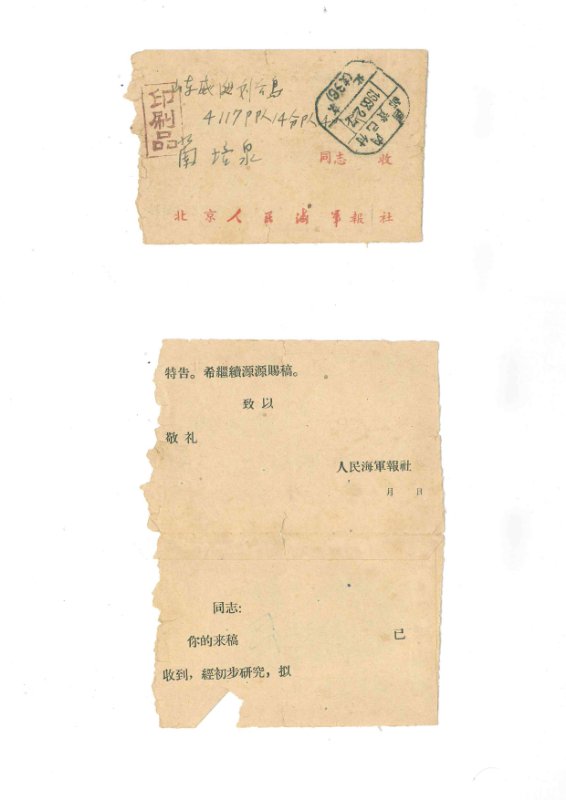 印刷品
山东威海刘公岛
4117P队14分队
萧培泉
同志 收
北京人民海軍報社
特告。希繼續源源賜稿。
致以
敬礼
人民海軍報社
月 日
同志:
你的来稿 已
收到，經初步研究，拟